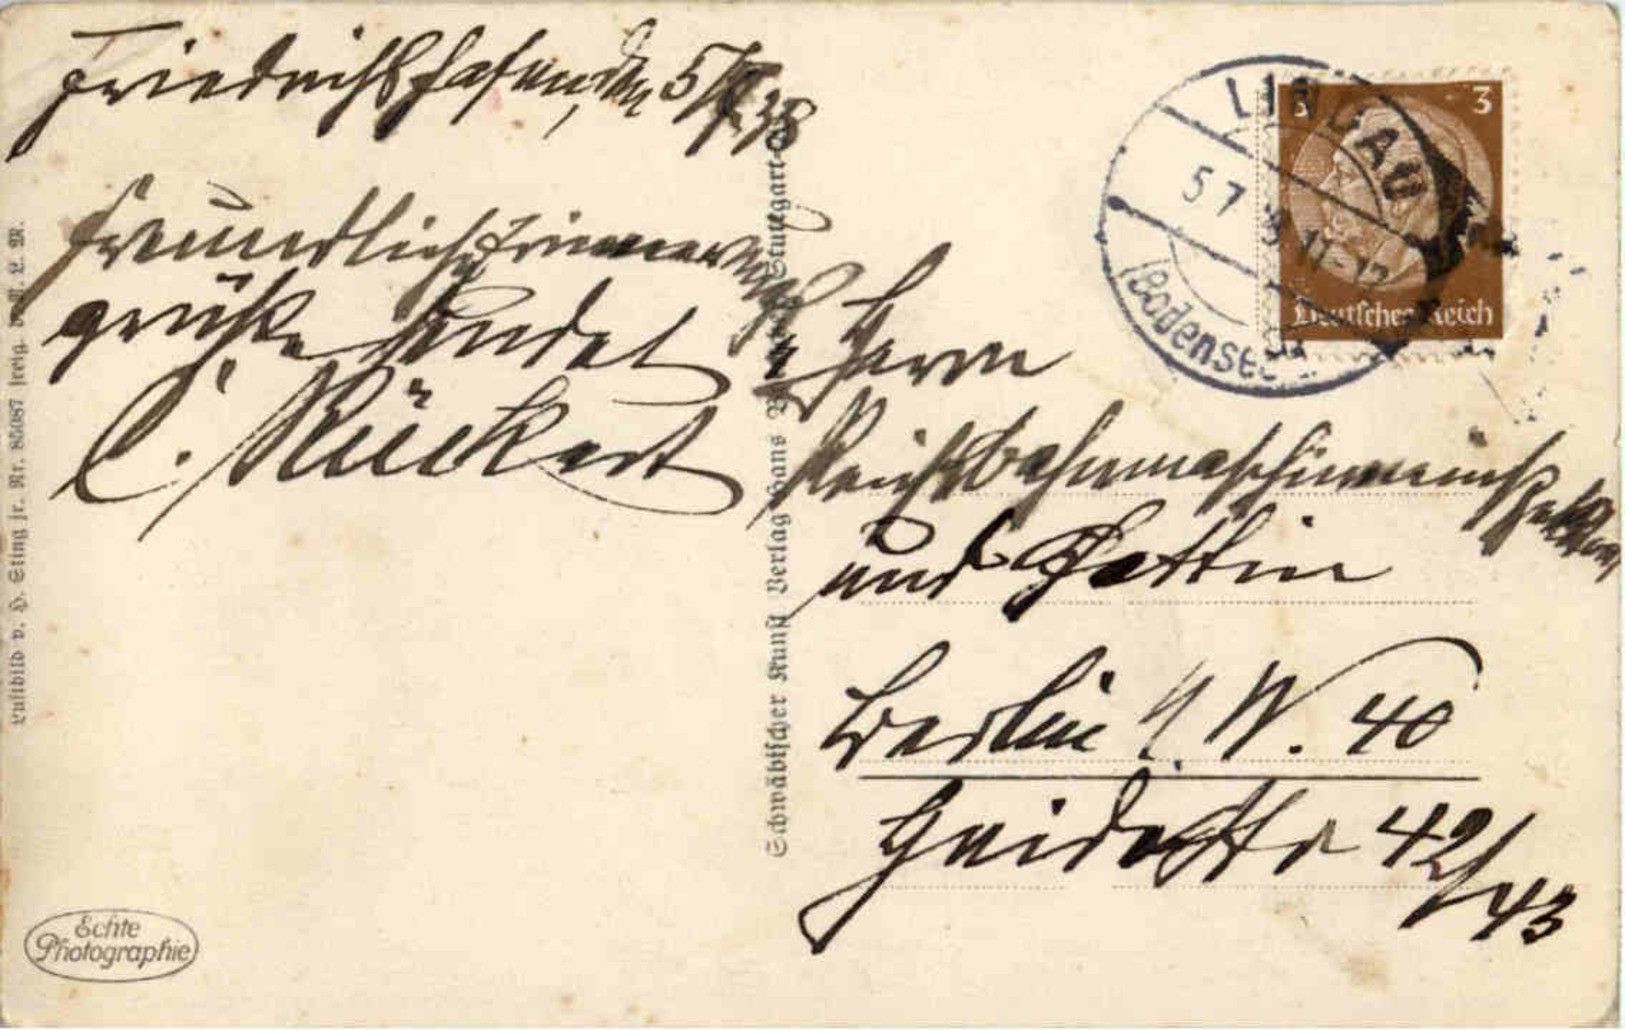 Friedrichshafen, den 5/7. 38
Freundliche Erinnerungs
grüße sendet
C. Rückert
Herrn
Reichsbahnmaschineninspektor
und Gattin
Berlin N. W. 40
Heidestr 42/43
LINDAU
5 7 3 11-12
(Bodensee
3 3
Deutsches Reich
Schwäbischer Kunst Verlag Hans Stuttgart
Luftbild v. H. Sting jr. Nr. 85087 freig. R. L. M.
Echte
Photographie